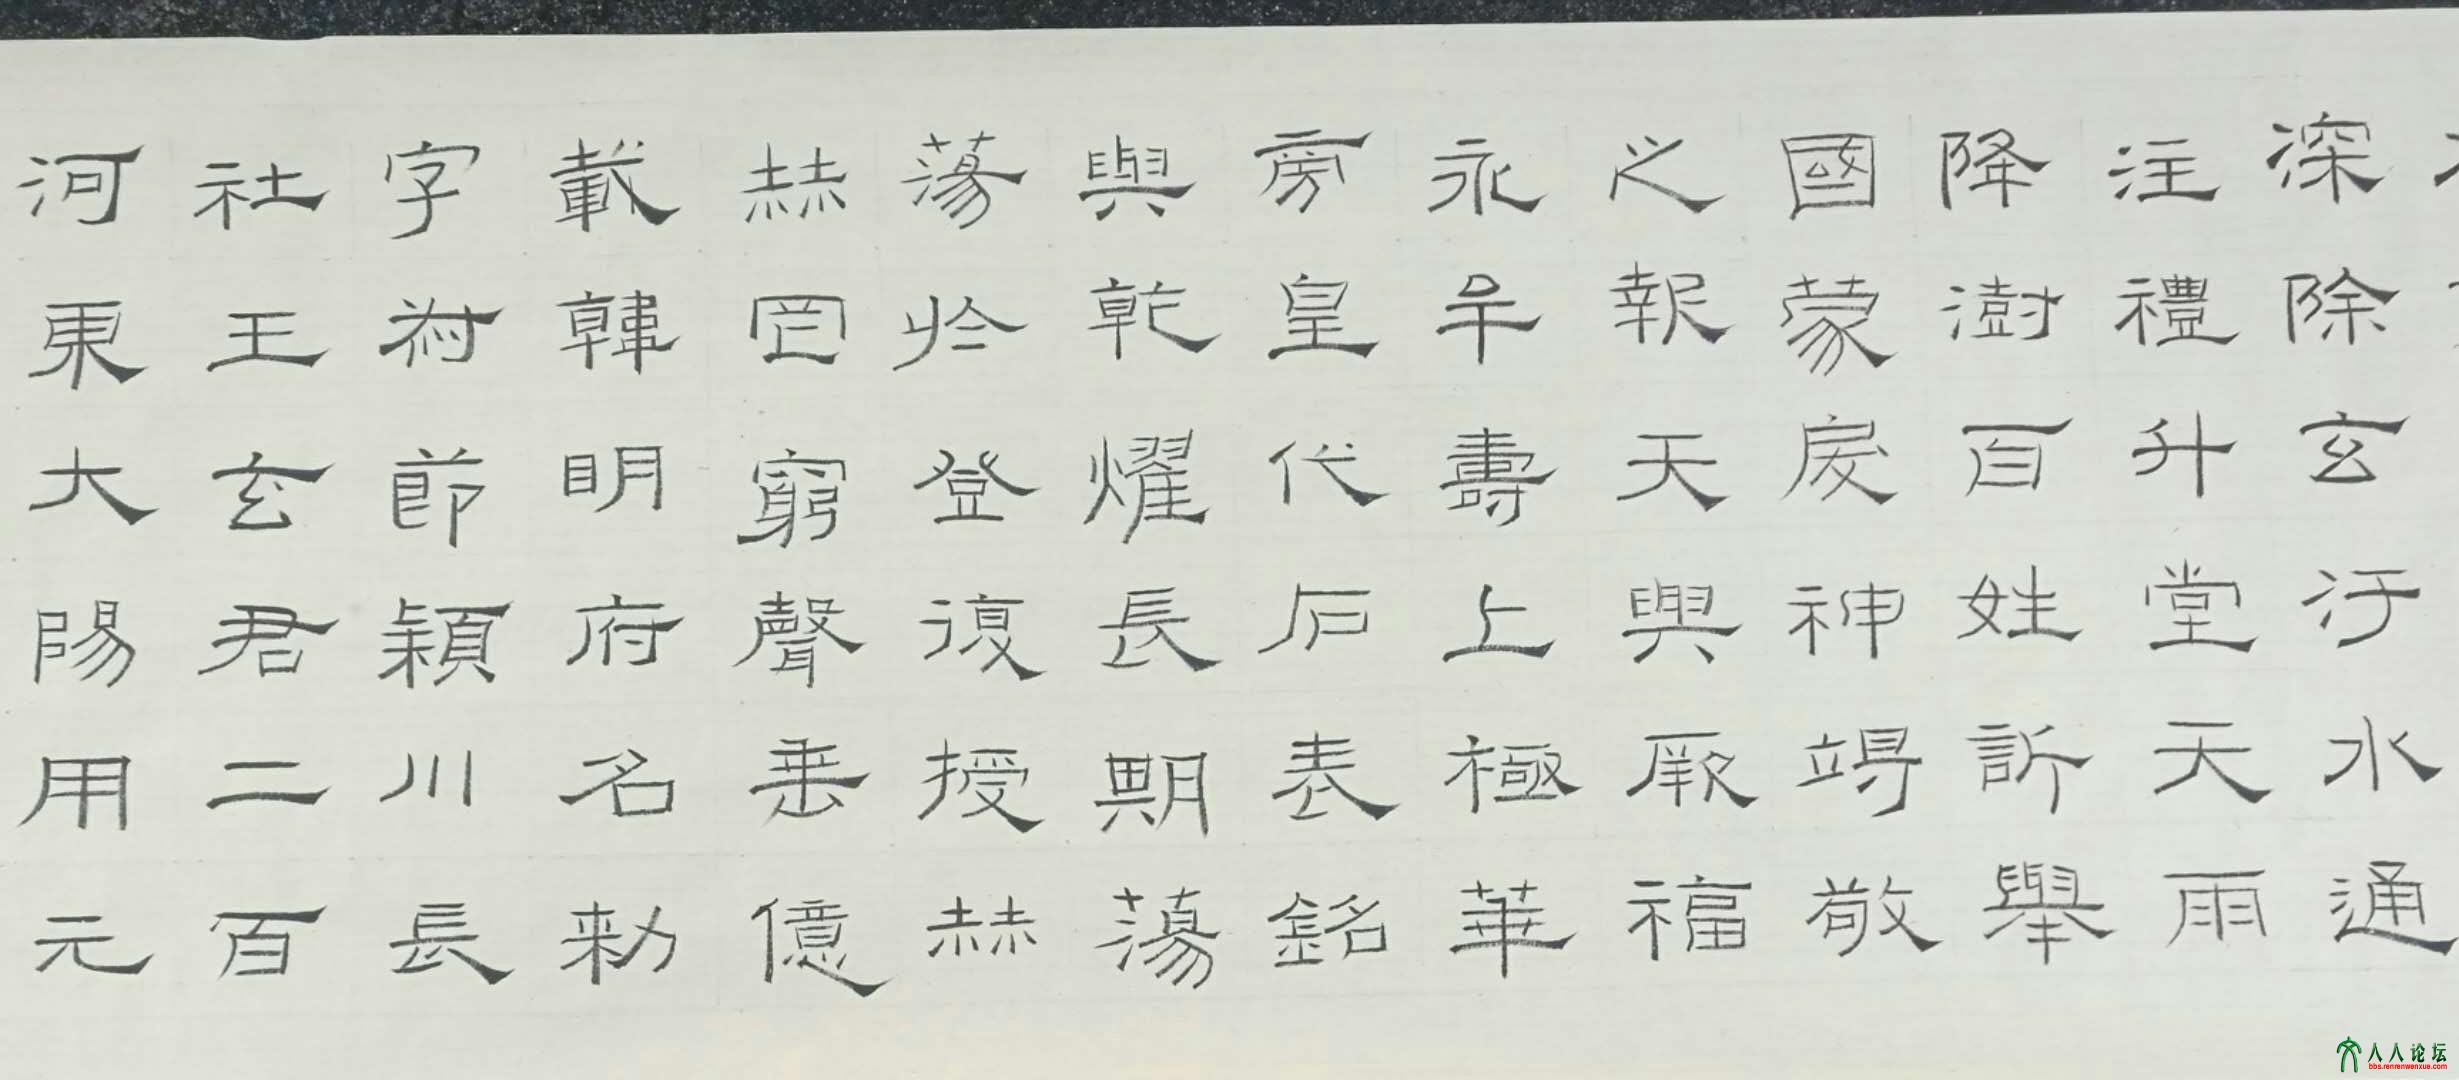 深除玄汙水通
注禮升堂天雨
降澍百姓訢舉
國蒙慶神竭敬
之報天與厥福
永牟壽上極華
旁皇代石表銘
與乾燿長期蕩
蕩於登復授赫
赫罔窮聲垂億
載韓明府名勑
字叔節穎川長
社王玄君二百
河東大陽用元
人人论坛
bbs.renrenwenxue.com